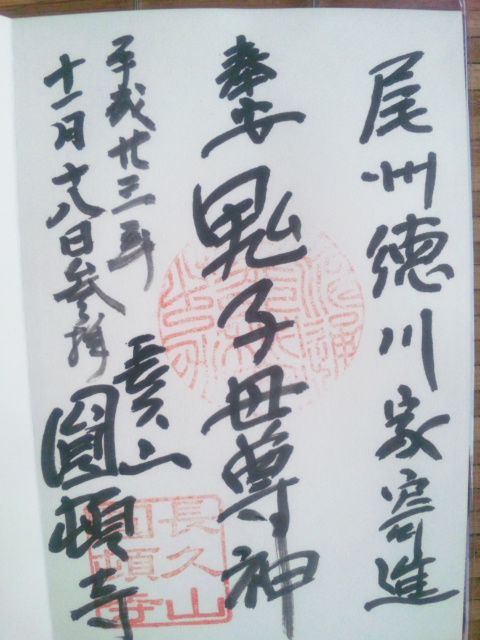 尾州徳川家寄進
奉安
鬼子母尊神
平成廿三年
十一月十八日参拝
長久山
圓頓寺
長久山
圓頓寺